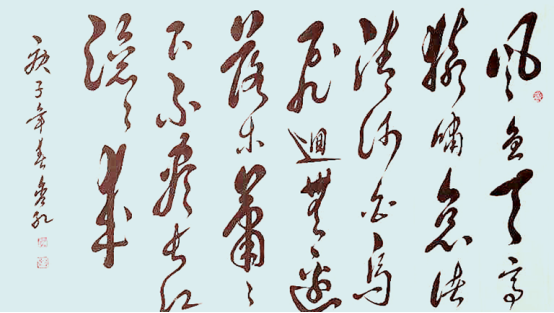 風急天高
猿嘯哀渚
清沙白鳥
飛迴無邊
落木蕭〻
下不盡長江
滚〻來
庚子年春